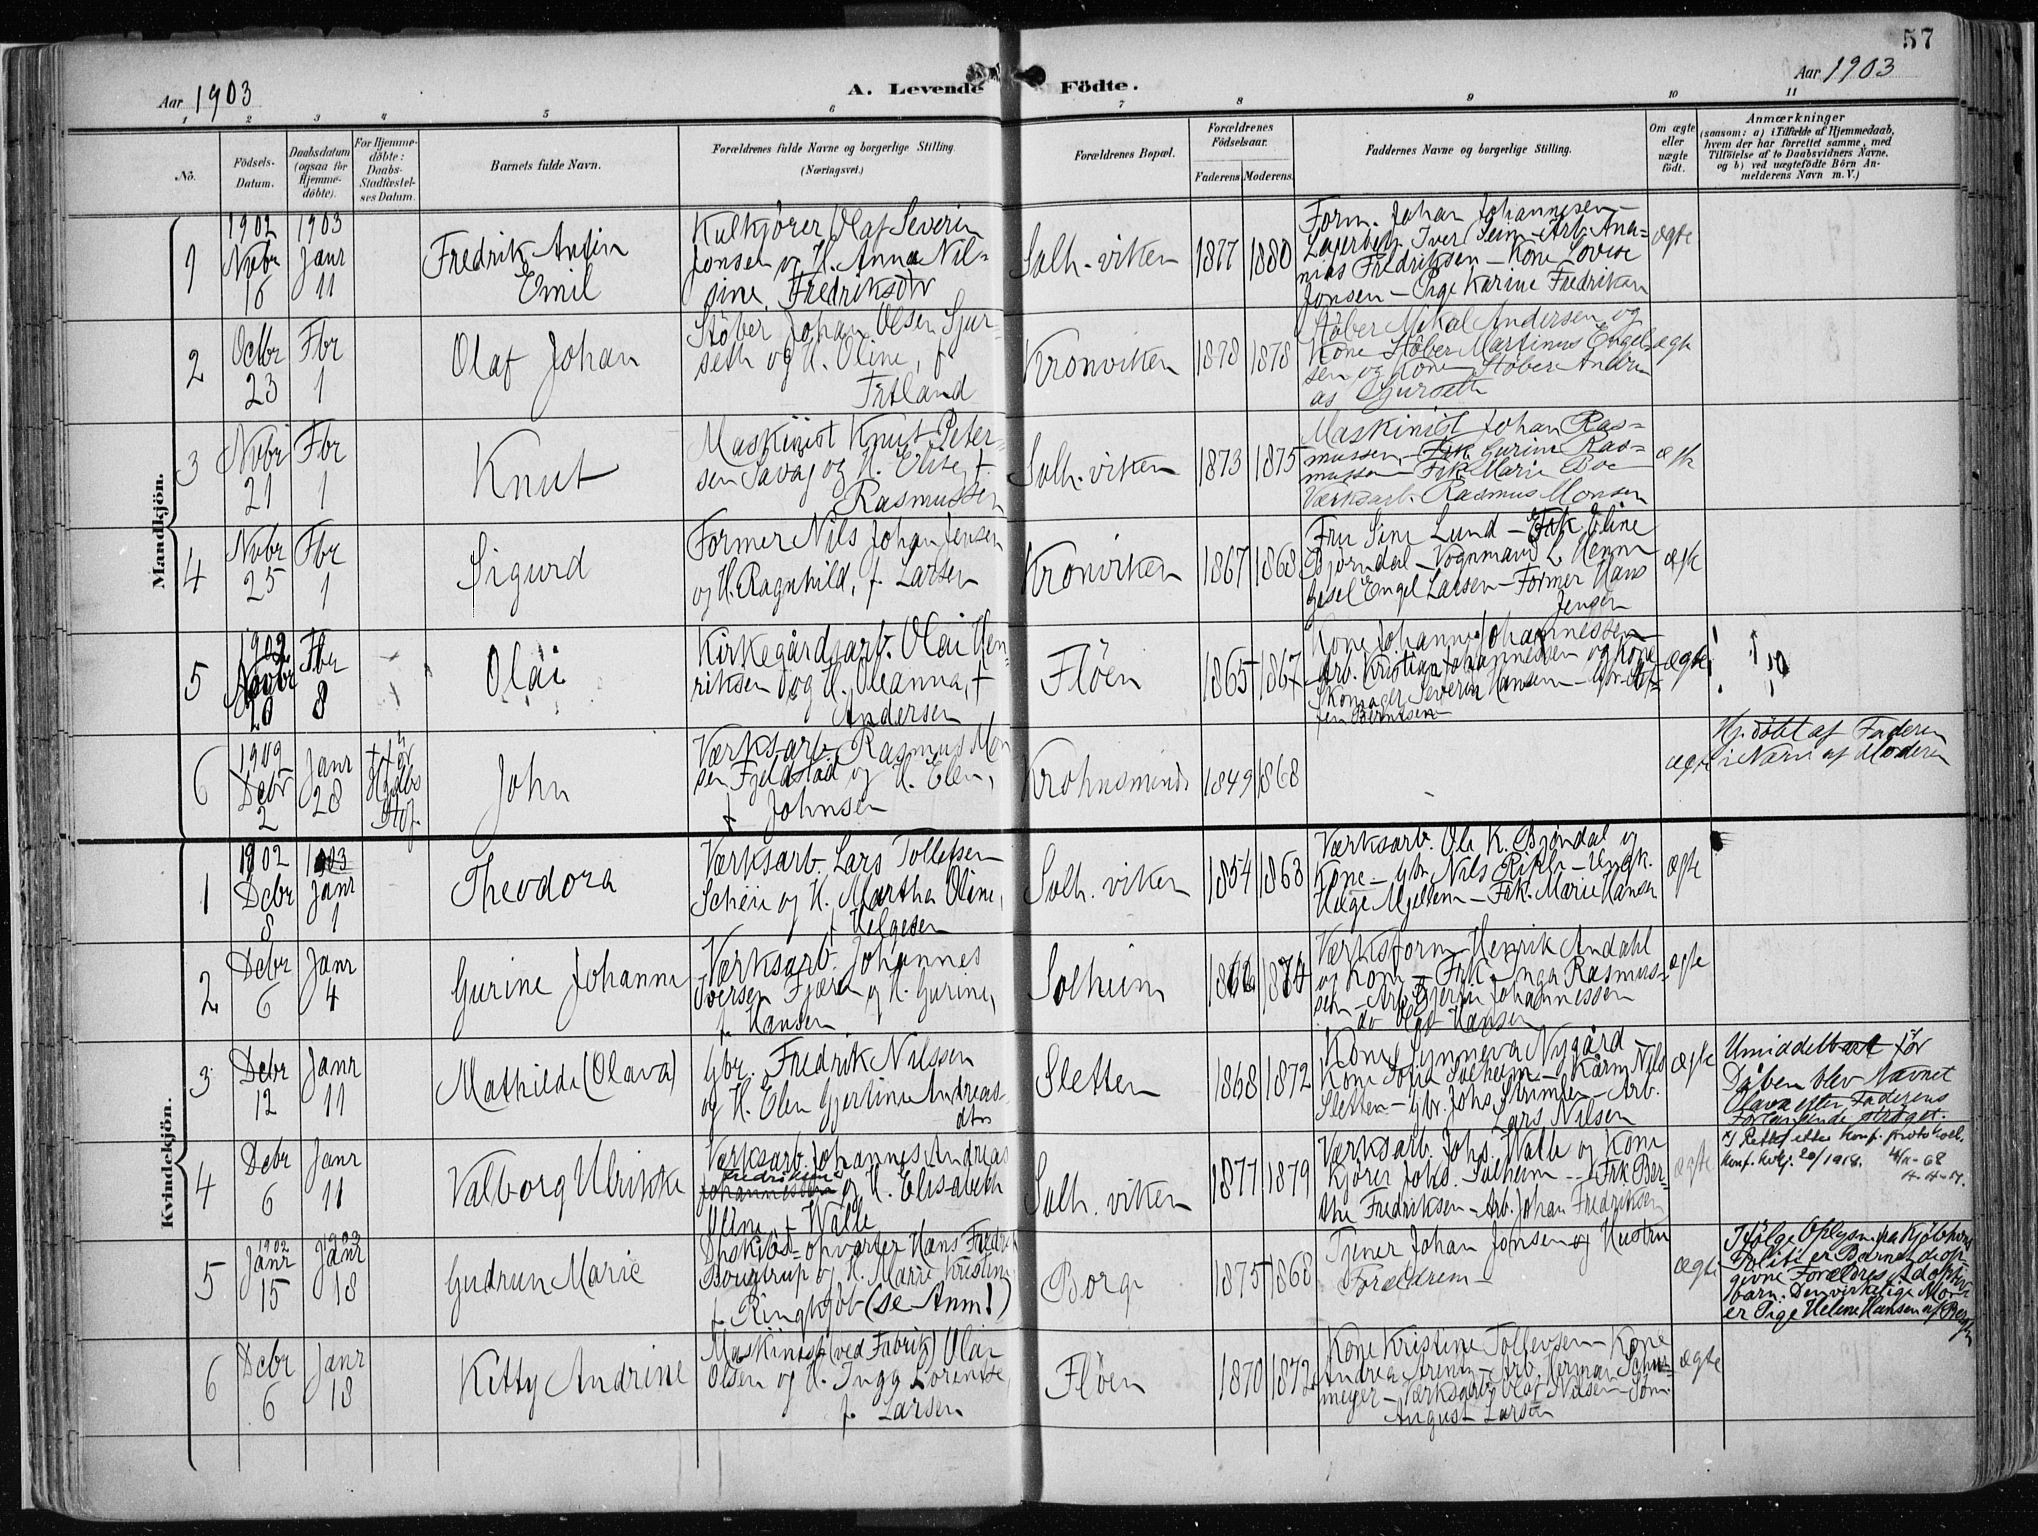 57
Aar 1903
A. Levende Födte.
Aar 1903
1 2 3 4 5 6 7 8 9 10 11
No.
Födsels-Datum.
Daabsdatum (ogsaa for Hjemmedöbte).
For Hjemmedöbte: Daabs-Stadfæstelses Datum.
Barnets fulde Navn.
Forældrenes fulde Navne og borgerlige Stilling. (Næringsvei.)
Forældrenes Bopæl.
Forældrenes Födselsaar.
Faderens. Moderens.
Faddernes Navne og borgerlige Stilling.
Om ægte eller uægte födt.
Anmærkninger
(saasom: a) i Tilfælde af Hjemmedaab,
hvem der har forrettet samme, med
Tilföielse af to Daabsvidners Navne,
og b) ved uægtefödte Börn An-
melderens Navn m. V.)
Mandkjön.
1
1902 Novbr 16
1903 Janr 11
Fredrik Antin
Emil
Kulkjører Olaf Severin
Jonsen og H. Anna Nil-
sine, Fredriksdtr
Solh. viken
1877 1880
Form. Johan Johannesen -
Lagerbetj. Iver Seim - Arb. Ana-
nias Fredriksen - Kone Lovise
Jonsen - Pige Karine Fredriksen
ægte
2
Octbr 23
Fbr 1
Olaf Johan
Støber Johan Olsen Sjur-
seth og H. Oline, f.
Fretland
Kronviken
1878 1878
Støber Mikal Andersen og
Kone Støber Martinus Engel-
sen og Kone Støber Andre
as Sjurseth
ægte
3
Novbr 21
Fbr 1
Knut
Maskinist Knut Peter-
sen Savag og H. Elise, f.
Rasmussen
Solh. viken
1873 1875
Maskinist Johan Ras-
mussen - Frk. Gurine Ras-
mussen - Frk. Marie Boe
Værksarb. Rasmus Monsen
ægte
4
Novbr 25
Fbr 1
Sigurd
Former Nils Johan Jensen
og H. Ragnhild, f. Larsen
Kronviken
1867 1868
Fru Sine Lund - Frk Eline
Bjørndal - Vognmand L. Henn
Gesel Engel Larsen - Former Hans
Jensen
ægte
5
1902 Novbr 26
Fbr 8
Olai
Kirkegårdsarb. Olai Hen-
riksen og H. Oleanna, f.
Andersen
Fløen
1865 1867
Kone Johanne Johannessen
Arb. Kristian Johannessen og Kone
Skomager Severin Hansen -
Berntsen
ægte
6
1902 Debr 2
Janr 28
John
Værksarb. Rasmus Mon
sen Fjeldstad og H. Elen,
f. Johnsen
Krohnsminde
1849 1868
ægte
Hj. döbt af Faderen
i Navn af Moderen
Kvindekjön.
1
1902 Debr 8
1903 Janr 1
Theodora
Værksarb. Lars Tollefsen
Scheie og H. Martha Oline,
f. Helgesen
Solh. viken
1854 1863
Værksarb. Ole K. Bjøndal og
Kone - Gbr. Nils Rikle - Ungk.
Helge Mjeltem - Frk. Marie Hansen
ægte
2
Debr 6
Janr 4
Gurine Johanne
Værksarb. Johannes
Iversen Fjære og H. Gurine,
f. Hansen
Solheim
1874
Værksform. Henrik Andahl
og Kone - Frk. Inga Rasmus-
sen - Arb. Bjerne Johannessen
do Olaf Hansen
ægte
3
Debr 12
Janr 11
Mathilde (Olava)
Gbr. Fredrik Nilssen
og H. Elen Gjertine Andreas-
dtr
Sletten
1868 1872
Kone Synneva Nygård -
Kone Sofie Solheim - Gkarm. Nils
Sletten - Gbr. Johs. Strimler - Arb.
Lars Nilsen
ægte
Umiddelbart før
Dåben blev Navnet
Olava efter Faderens
Forlangende strøget.
4
Debr 6
Janr 11
Valborg Ulrikke
Værksarb. Johannes Andreas
Fredriksen
Johannessen og H. Elisabeth
Oline, f. Walle
Solh. viken
1877 1879
Værksarb. Johs. Walle og Kone
Kjører Johs. Solheim - Frk Ber-
the Fredriksen - Arb. Johan Fredriksen
ægte
Rettet etter konf. protokoll.
5
1902 Janr 15
1903 Janr 18
Gudrun Marie
Dskibs-opvarter Hans Fredrik
Bougtrup og H. Marie Kristine
f. Ringkjöb (se Anm!)
Borg
1875 1868
Tjener Johan Jonsen og Hustru
Forældrem -
ægte
Ifølge Oplysn. fra Kjöbhvns
Politi er Barnet de op-
givne Forældres Adoptiv-
barn. Den virkelige Mor
er Pige Helene Hansen af Bergen
6
Debr 6
Janr 18
Kitty Andrine
Maskinist (ved Fabrik) Olai
Olsen og H. Inga Lorentse,
f. Larsen
Fløen
1870 1872
Kone Kristine Tollevsen - Kone
Andrea Arentz - Arb. Herman
meyer - Værksarb. Olaf Nilsen - Søm.
August Larsen
ægte